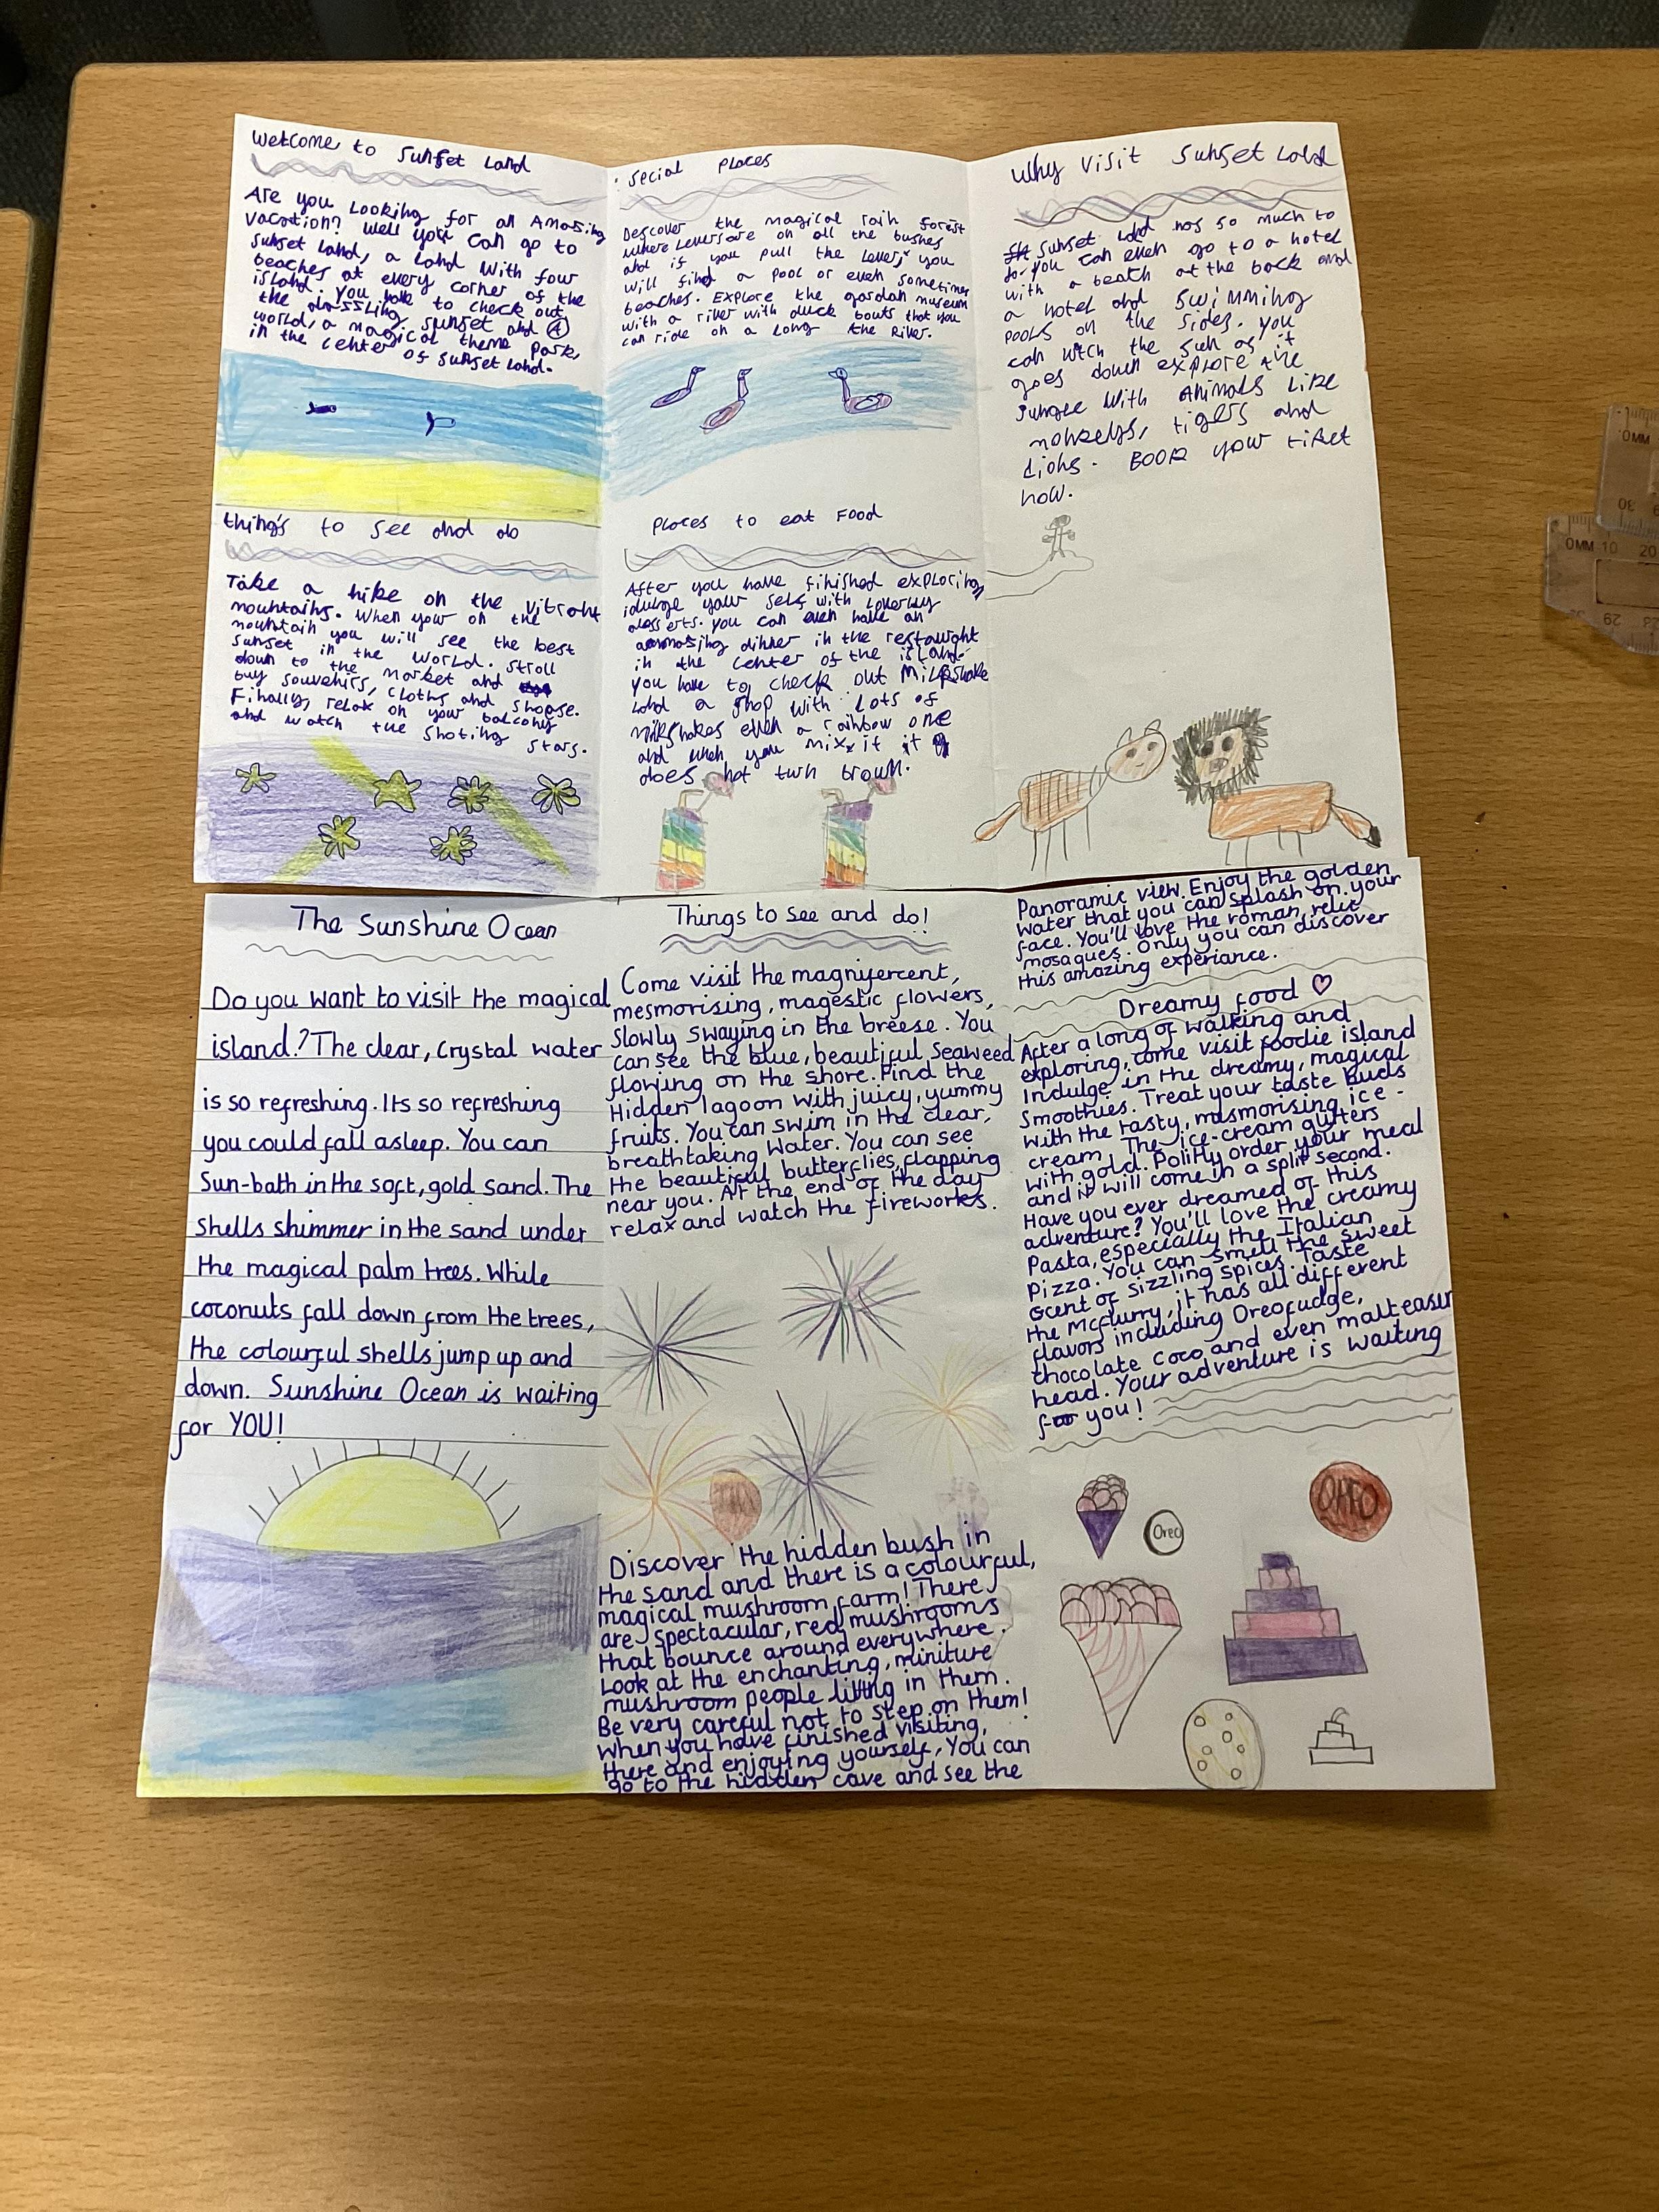 Welcome to Sunset Land
Are you Looking for an Amazing
Vacation? Well you can go to
Sunset Land, a Land With four
beaches at every corner of the
island. You have to check out
the dassling sunset and
world, a magical theme park,
in the center of Sunset Land.
things to see and do
Take a hike on the vibrant
mountains. When your on the
mountain you will see the best
sunset in the world. Stroll
down to the market and
buy souvenirs, cloths and shoose.
Finally, relax on your balcony
and watch the shoting stars.
Secial Places
Descover the magical rain forest
where Levers are on all the bushes
and if you pull the Lever, you
will find a pool or even sometimes
beaches. Explore the gardan museum
with a river with duck bouts that you
can ride on a long the River.
Places to eat Food
After you have finished exploring,
idulge your self with Loverley
desserts. You can even have an
amazing dinner in the restaught
in the center of the island.
You have to check out Milkshake
Land a shop with Lots of
milkshakes even a rainbow one
and when you mixx it it
does not turn brown.
Why visit Sunset Land
Sunset Land has so much to
do you can even go to a hotel
with a beach at the back and
a hotel and swimming
pools on the sides. You
can wtch the sun as it
goes down explore the
jungle With Animals Like
monkeys, tigers and
Lions. BOOK your ticket
now.
The Sunshine Ocean
Do you want to visit the magical
island? The clear, crystal water
is so refreshing. Its so refreshing
you could fall asleep. You can
Sun-bath in the soft, gold sand. The
shells shimmer in the sand under
the magical palm trees. While
coconuts fall down from the trees,
the colourful shells jump up and
down. Sunshine Ocean is waiting
for YOU!
Things to see and do!
Come visit the magnifercent,
mesmorising, magestic flowers,
Slowly swaying in the breese. You
can see the blue, beautiful seaweed
flowing on the shore. Find the
Hidden lagoon with juicy, yummy
fruits. You can swim in the clear,
breathtaking water. You can see
the beautiful butterflies, flapping
near you. At the end of the day
relax and watch the fireworks.
Discover the hidden bush in
the sand and there is a colourful,
magical mushroom farm! There
are spectacular, red mushrooms
that bounce around everywhere.
Look at the enchanting, miniture
mushroom people living in them.
Be very careful not to step on them!
When you have finished visiting,
there and enjoying yourself, You can
go to the hidden cave and see the
Panoramic view. Enjoy the golden
water that you can splash on your
face. You'll love the roman relic
mosaques. Only you can discover
this amazing experiance.
Dreamy food
After a long of walking and
exploring, come visit foodie island
Indulge in the dreamy, magical
Smoothies. Treat your taste buds
with the tasty, mesmorising ice-
cream. The ice-cream glitters
with gold. Politly order your meal
and it will come in a split second.
Have you ever dreamed of this
adventure? You'll love the creamy
Pasta, especially the Italian
Pizza. You can smell the sweet
scent of sizzling spices. Taste
the Mcflurry, it has all different
flavors including Oreofudge,
chocolate coco and even malteaser
head. Your adventure is waiting
for you!
Oreo
OREO
0MM 10 20